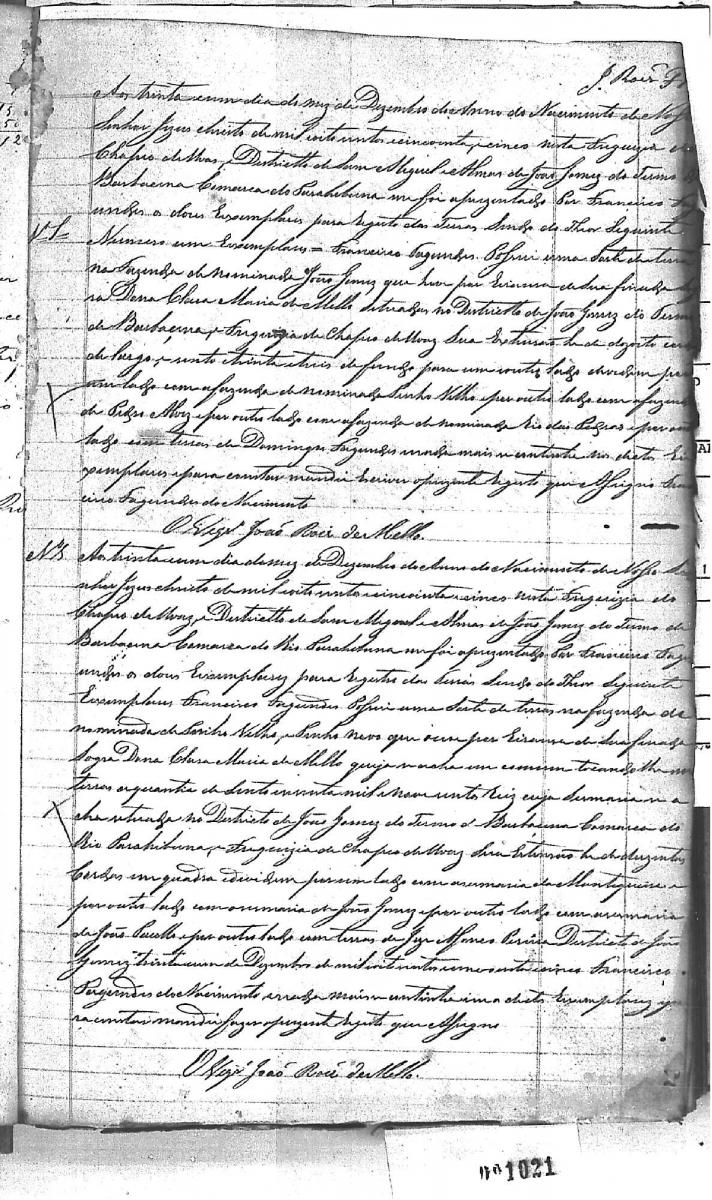 J. Roiz
Aos trinta e um dia do mez de Dezembro do Anno do Nacimento de Nos
Senhor Jezus christo de mil oito sentos e cincoenta e cinco nesta Freguezia
Chapeo de Uvas, e Destricto de Sam Miguel e Almas de João Gomez do Termo
Barbacena Comarca do Parahibuna me foi aprezentado Por Francisco
undes os dous Exemplares para Registo das Terras Sendo do Theor Seguinte
Numero um Exemplares = Francisco Fagundes Possui uma Sorte de terras
na Fazenda denominada João Gomez que houve por Eransa de Sua finada
gra Dona Clara Maria de Mello setuadas no Destricto de João Gomez do Termo
de Barbacena, e Freguezia de Chapeo de Uvaz Sua Extensão he de dezoito
de largo, e sento trinta e treis de fundo para um outro lado devidem por
um lado com a fazenda denominada Sinho Velho e por outro lado com a fazenda
de Pedro Alvez e por outro lado com a fazenda denominada Rio das Pedras e por
lado com terras de Domingos Fagundes e nada mais se continha nos dictos
xemplares e para constar mandei Escrever o prezente Registo que Assigno Fran
cisco Fagundes do Nacimento
O Vigr.º João Roiz de Mello.
Aos trinta e um dia do mez de Dezembro do Anno do Nacimento de Nosso
nhor Jezus christo de mil oito sentos e cincoenta e cinco nesta Freguezia do
Chapeo de Uvaz, e Destricto de Sam Miguel e Almas de João Gomez do Termo de
Barbacena Comarca do Rio Parahibuna me foi aprezentado Por Francisco Fag
undes os dous Exemplarez para Registo das terras Sendo do Theor Seguinte
Exemplares Francisco Fagundes Possui uma Sorte de terras na fazenda de
nominada de Sinho Velho, e Sinho novo que ouve per Eransa de Sua finada
sogra Dona Clara Maria de Mello que ja se acha em comum tocando lhe na
terras a quantia de Sento e mil e nove sentos Reiz cuja Sesmaria se a
cha setuada no Destricto de João Gomez do Termo d' Barbacena Comarca do
Rio Parahibuna, e Freguezia de Chapeo de Uvaz Sua Extensão he de duzentas
em quadra e dividem por um lado com a sesmaria da Mantiqueira e
por outro lado com a sesmaria de João Gomez e por outro lado com a sesmaria
de João e por outro lado com terras de Joze Destricto de João
Gomez trinta e um de Dezembro de mil oito sentos e cincoenta e cinco Francisco
Fagundes do Nacimento e nada mais se continha nos dictos Exemplarez e pa
ra constar mandei fazer o prezente Registo que Assigno
O Vigr.º João Roiz de Mello.
nº 1021